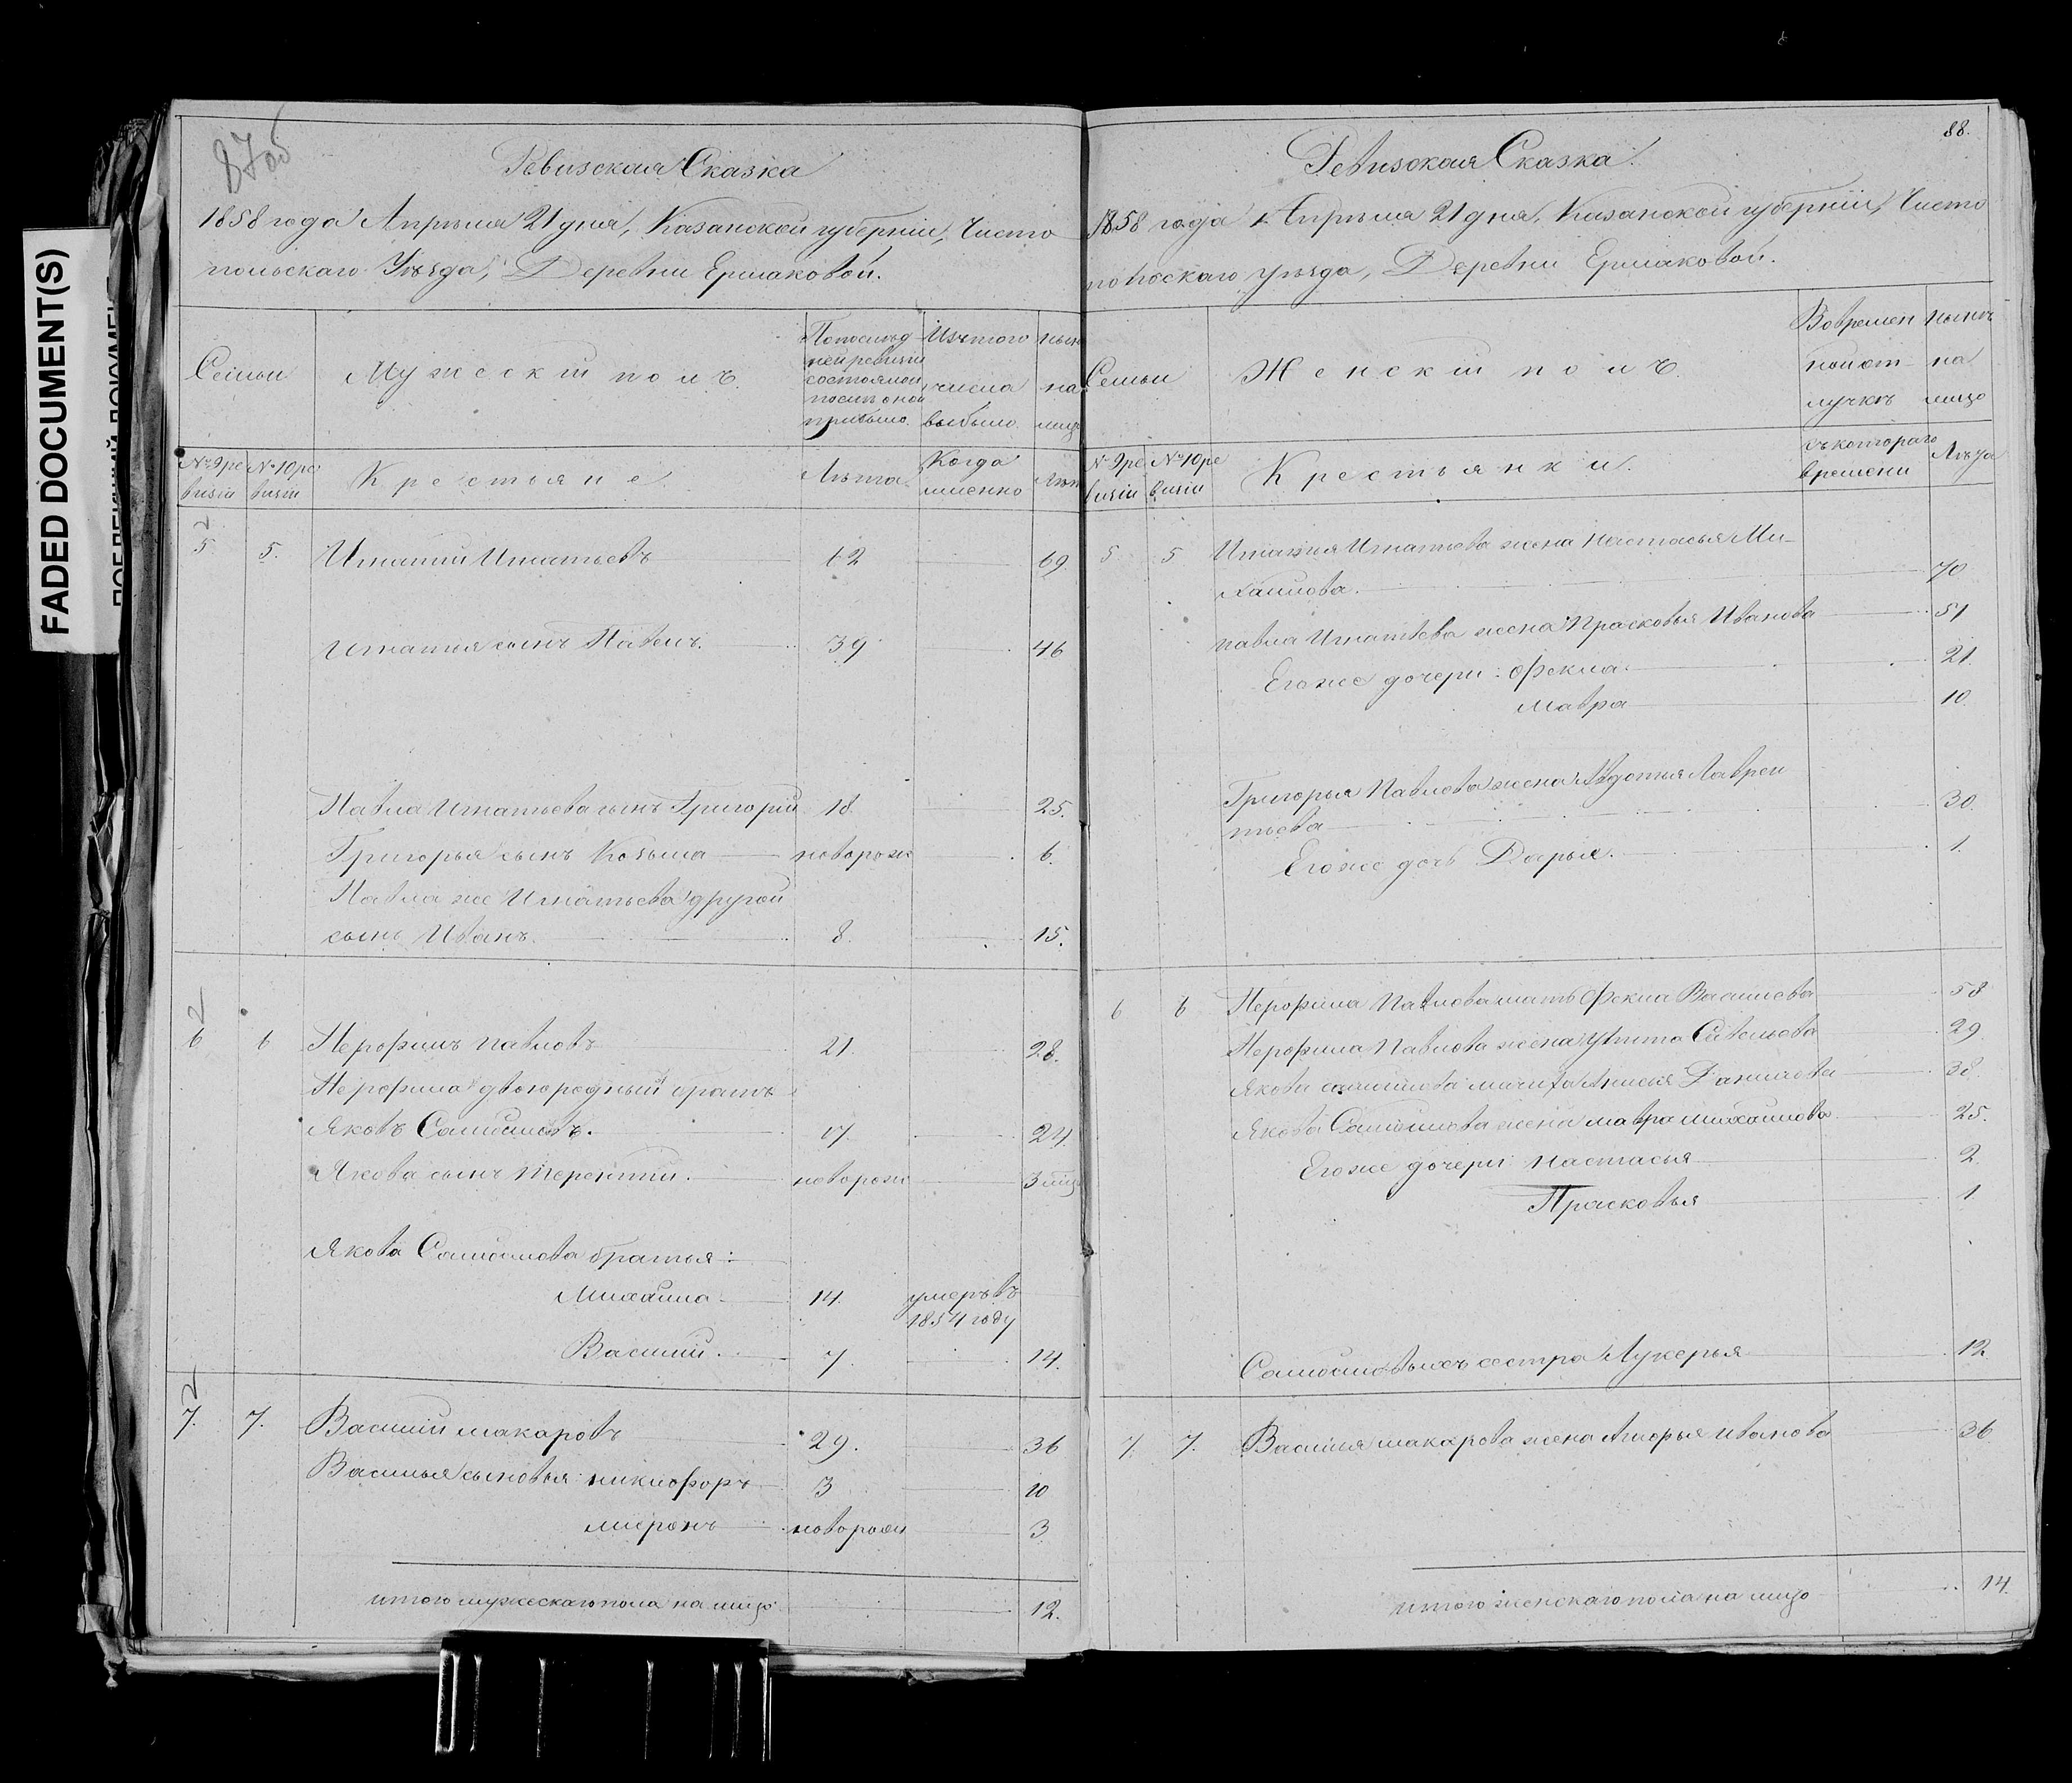 FADED DOCUMENT(S)
87об
Ревизская Сказка
1858 года Апрѣля 21 дня, Казанской губерніи, Чисто
польскаго Уѣзда, Деревни Ермаковой.
Семьи
Мужескій полъ.
По послѣд
ней ревизіи
состояло и
послѣ оной
прибыло.
Изъ того
числа
выбыло.
нынѣ
на
лицо
№ 9 ре
визіи
№ 10 ре
визіи
Крестьяне.
Лѣта
Когда
именно
Лѣта
5 5. Игнатій Игнатьевъ 62 69.
Игнатія сынъ Павелъ. 39 46
Павла Игнатьева сынъ Григорій 18. 25.
Григорья сынъ Козьма новорож 6.
Павла же Игнатьева другой
сынъ Иванъ. 8. 15.
6 6 Иерофимъ Павловъ 21. 28.
Иерофима двоюродный братъ
Яковъ Самойловъ. 17. 24.
Якова сынъ Терентій. новорож 3 мѣ
Якова Самойлова братья:
Михайла 14. умеръ въ
1854 году
Василій. 7. 14.
7. 7. Василій Макаровъ 29. 36
Василья сыновья: Никифоръ 3 10
Миронъ новорож 3
итого мужескаго пола на лицо 12.
88.
Ревизская Сказка
1858 года Апрѣля 21 дня, Казанской губерніи, Чисто
польскаго уѣзда, Деревни Ермаковой.
Семьи
Женскій полъ
Во времен
ной от-
лучкѣ
нынѣ
на
лицо
№ 9 ре
визіи
№ 10 ре
визіи
Крестьянки.
съ котораго
времени
Лѣта
5 5 Игнатія Игнатьева жена Настасья Ми-
хайлова. 70
Павла Игнатьева жена Прасковья Иванова 51
Его же дочери: Фекла 21.
Мавра 10.
Григорья Павлова жена Авдотья Лаврен
тьева 30.
Его же дочь Дарья. 1.
6 6 Иерофима Павлова мать Фекла Васильева 58
Иерофима Павлова жена Улита Савельева 29
Якова Самойлова мачиха Данилова 38.
Якова Самойлова жена Мавра Михайлова 25.
Его же дочери: Настасья 2.
Прасковья 1
Самойловыхъ сестра Лукерья 12
7. 7. Василія Макарова жена Иванова 36
итого женскаго пола на лицо 14.